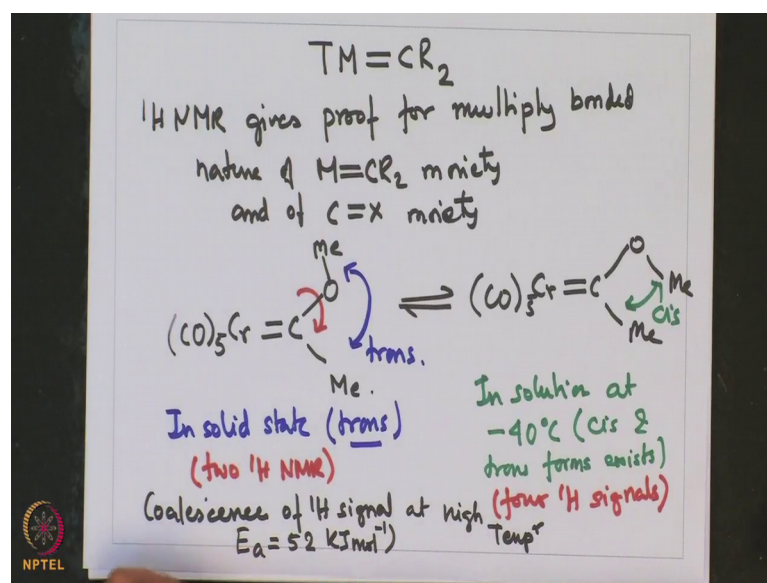 TM=CR2
1H NMR gives proof for multiply bonded
nature of M=CR2 moiety
and of C=X moiety
Me
O
(CO)5Cr=C
Me.
trans.
⇌
O
(CO)5Cr=C
Me
Me
cis
In solid state (trans)
(two 1H NMR)
In solution at
-40°C (cis &
trans forms exists)
(four 1H signals)
Coalescence of 1H signal at high Tempr
Ea=52 KJmol-1)
NPTEL